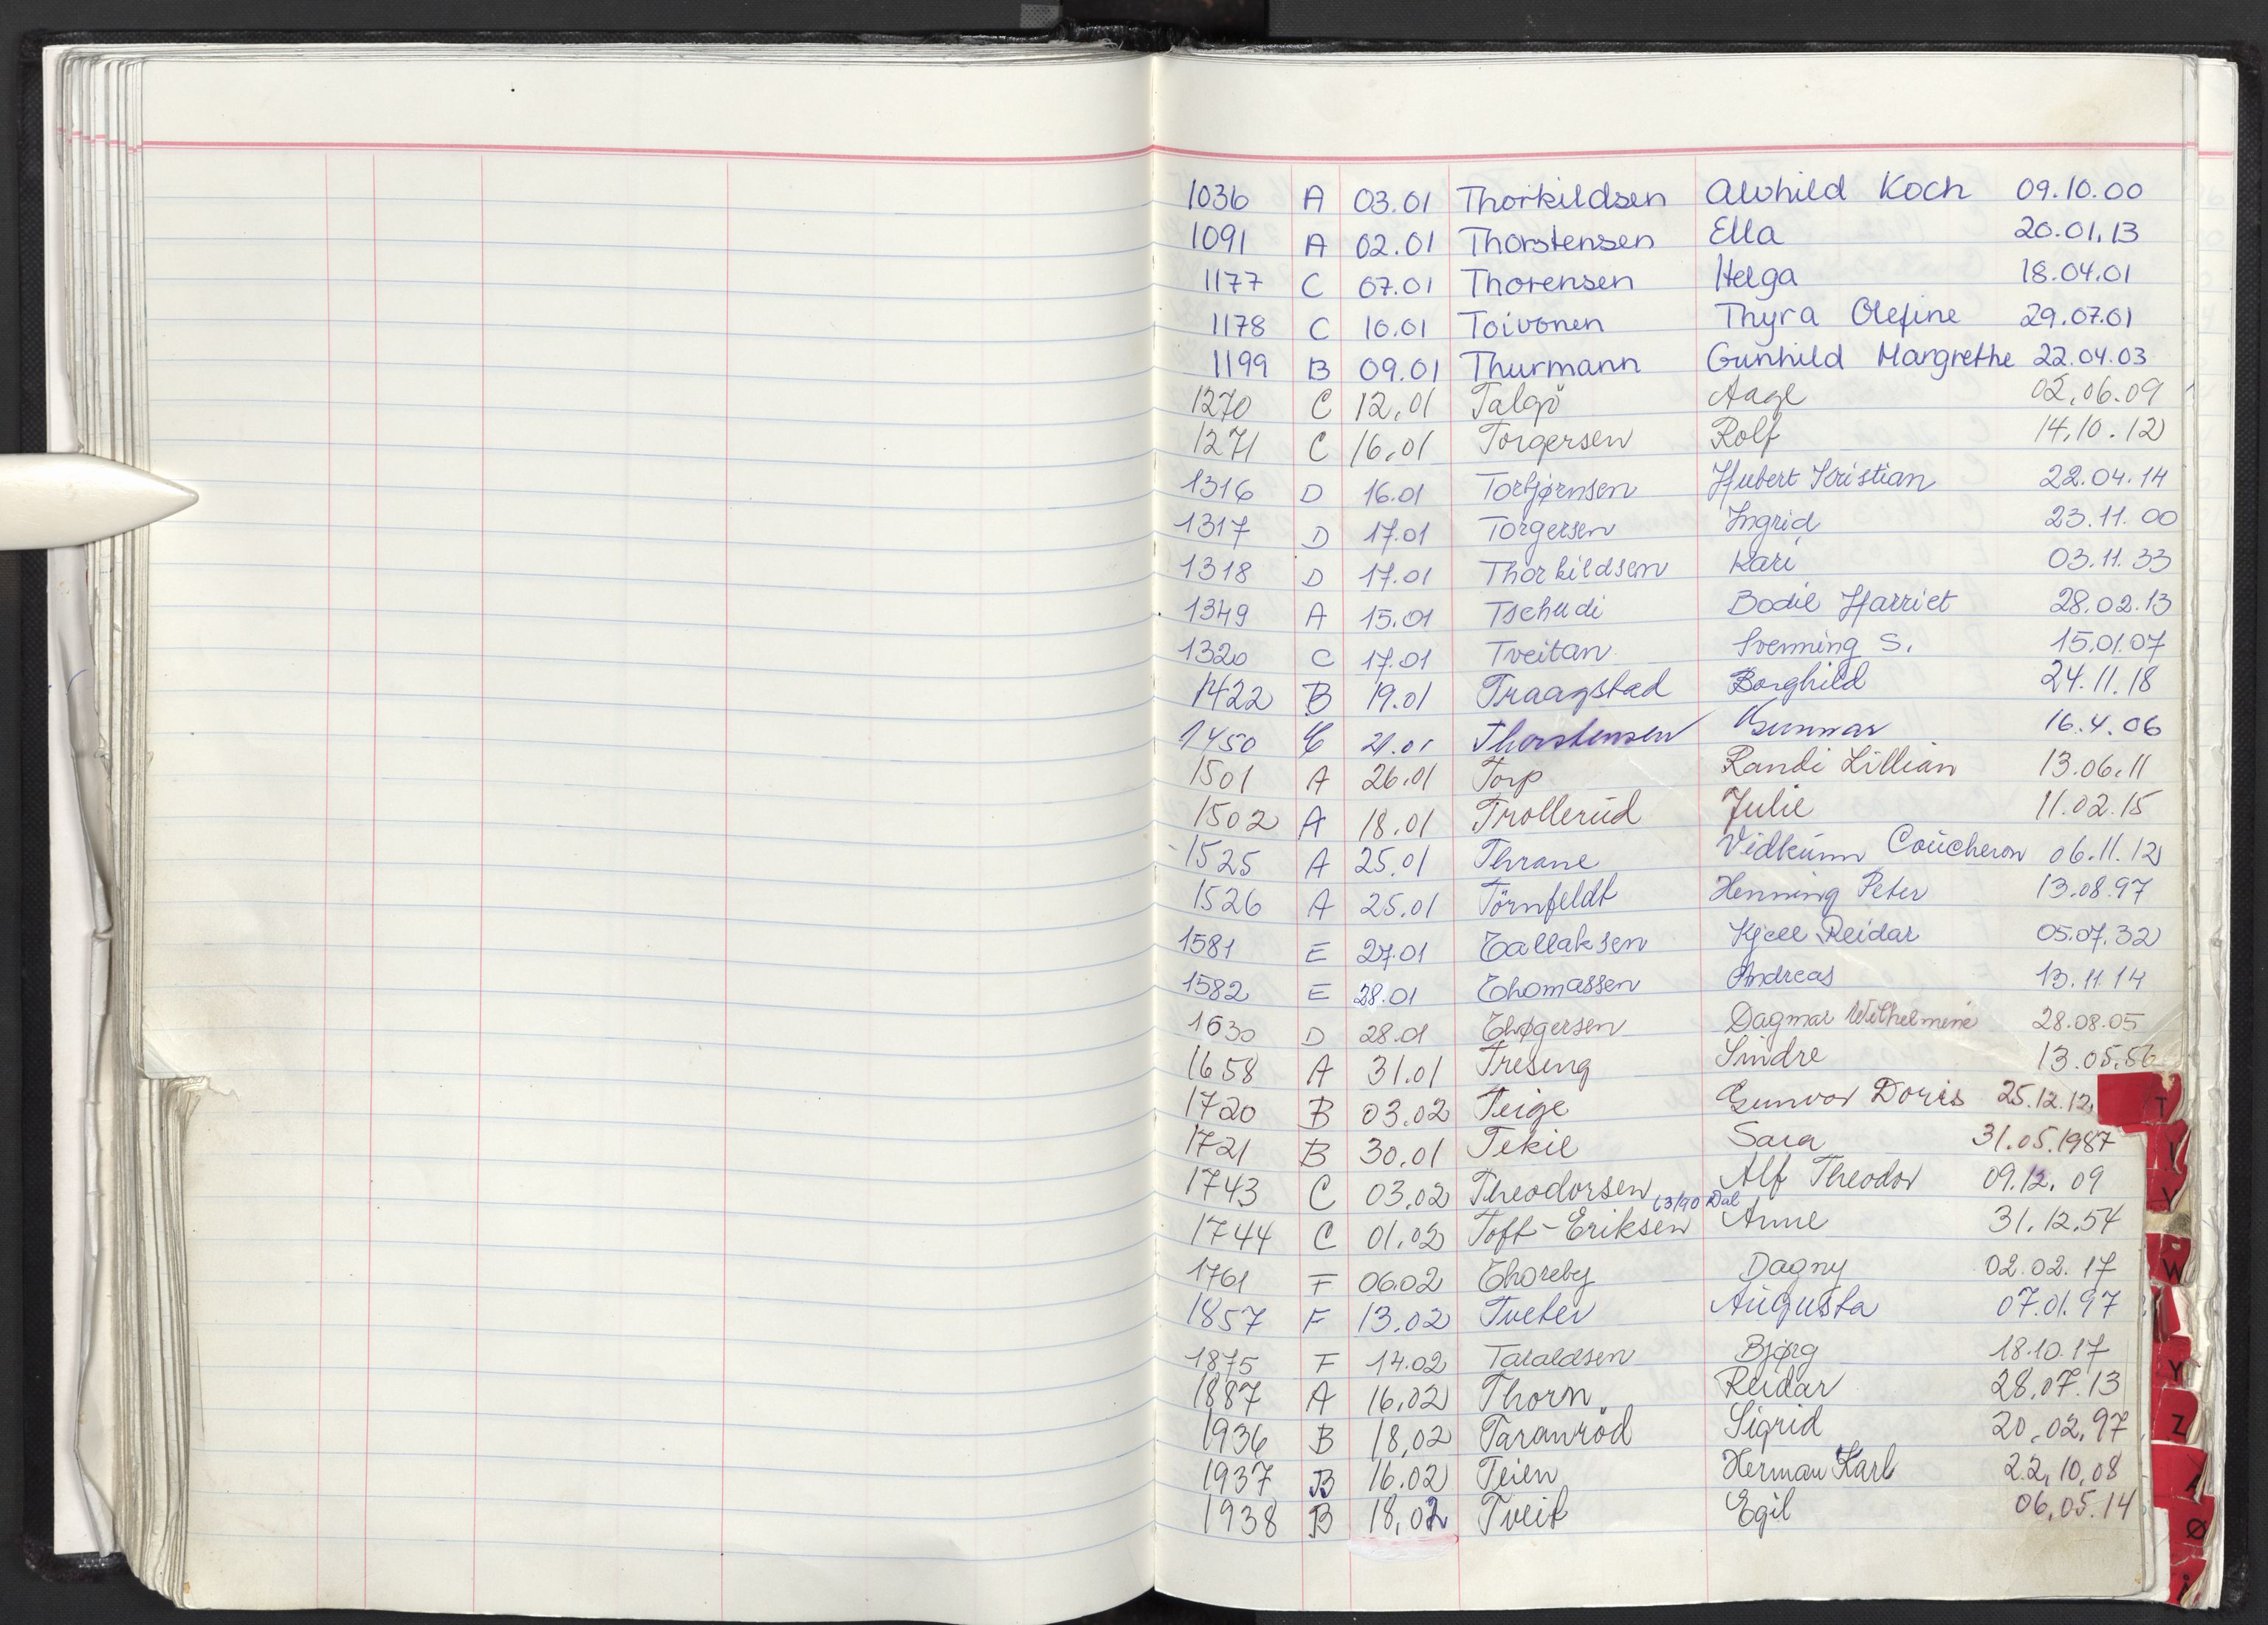 1036 A 03.01 Thorkildsen Alvhild Koch 09.10.00
1091 A 02.01 Thorstensen Ella 20.01.13
1177 C 07.01 Thorensen Helga 18.04.01
1178 C 10.01 Toivonen Thyra Olefine 29.07.01
1199 B 09.01 Thurmann Gunhild Margrethe 22.04.03
1270 C 12.01 Talgö Aage 02.06.09
1271 C 16.01 Torgersen Rolf 14.10.12
1316 D 16.01 Torbjørnsen Hjubert Kristian 22.04.14
1317 D 17.01 Torgersen Ingrid 23.11.00
1318 D 17.01 Thorkildsen Kari 03.11.33
1349 A 15.01 Tschudi Bodil Harriet 28.02.13
1320 C 17.01 Tveitan Svenning S. 15.01.07
1422 B 19.01 Traagstad Borghild 24.11.18
1450 C 21.01 Thorstensen Gunnar 16.4.06
1501 A 26.01 Torp Randi Lillian 13.06.11
1502 A 18.01 Trollerud Julie 11.02.15
1525 A 25.01 Thrane Vidkunn Coucheron 06.11.12
1526 A 25.01 Törnfeldt Henning Peter 13.08.97
1581 E 27.01 Tallaksen Kjell Reidar 05.07.32
1582 E 28.01 Thomassen Andreas 13.11.14
1630 D 28.01 Thøgersen Dagmar Wilhelmine 28.08.05
1658 A 31.01 Treseng Sindre 13.05.56
1720 B 03.02 Teige Gunvor Doris 25.12.12
1721 B 30.01 Tekil Sara 31.05.1987
1743 C 03.02 Theodorsen Alf Theodor 09.12.09
63/90 Dal
1744 C 01.02 Toft-Eriksen Anne 31.12.54
1761 F 06.02 Thoreby Dagny 02.02.17
1857 F 13.02 Tveter Augusta 07.01.97
1875 F 14.02 Taraldsen Bjørg 18.10.17
1887 A 16.02 Thorn Reidar 28.07.13
1936 B 18.02 Taranröd Sigrid 20.02.97
1937 B 16.02 Teien Herman Karl 22.10.08
1938 B 18.02 Tveit Egil 06.05.14
T
V
W
Y
Z
Ø